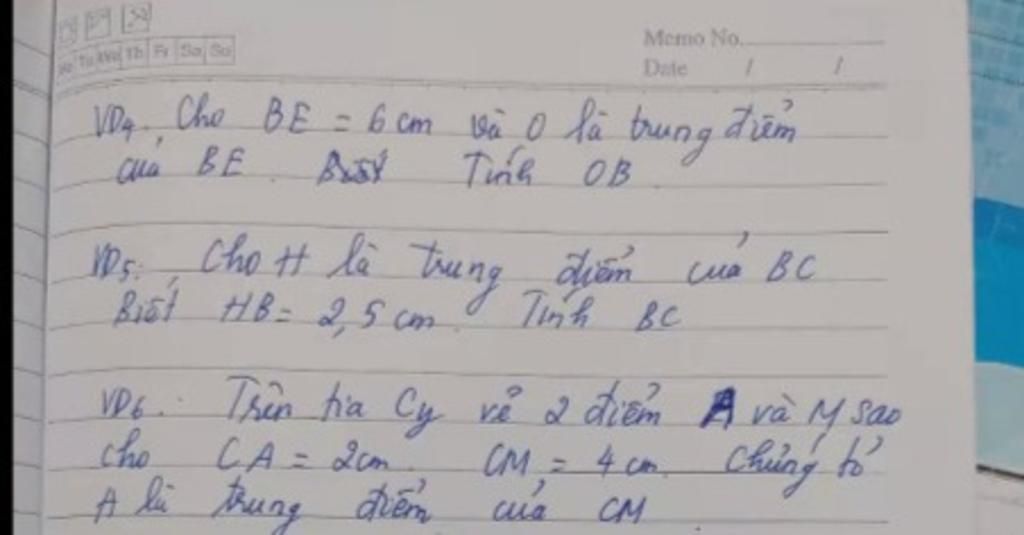 Memo No.
Mo Tu We Th Fr Sa Su
Date / /
VD4. Cho BE = 6 cm và O là trung điểm
của BE. Biết Tính OB.
VD5: Cho H là trung điểm của BC
Biết HB = 2,5 cm. Tính BC
VD6. Trên tia Cy vẽ 2 điểm A và M sao
cho CA = 2cm. CM = 4 cm. Chứng tỏ
A là trung điểm của CM